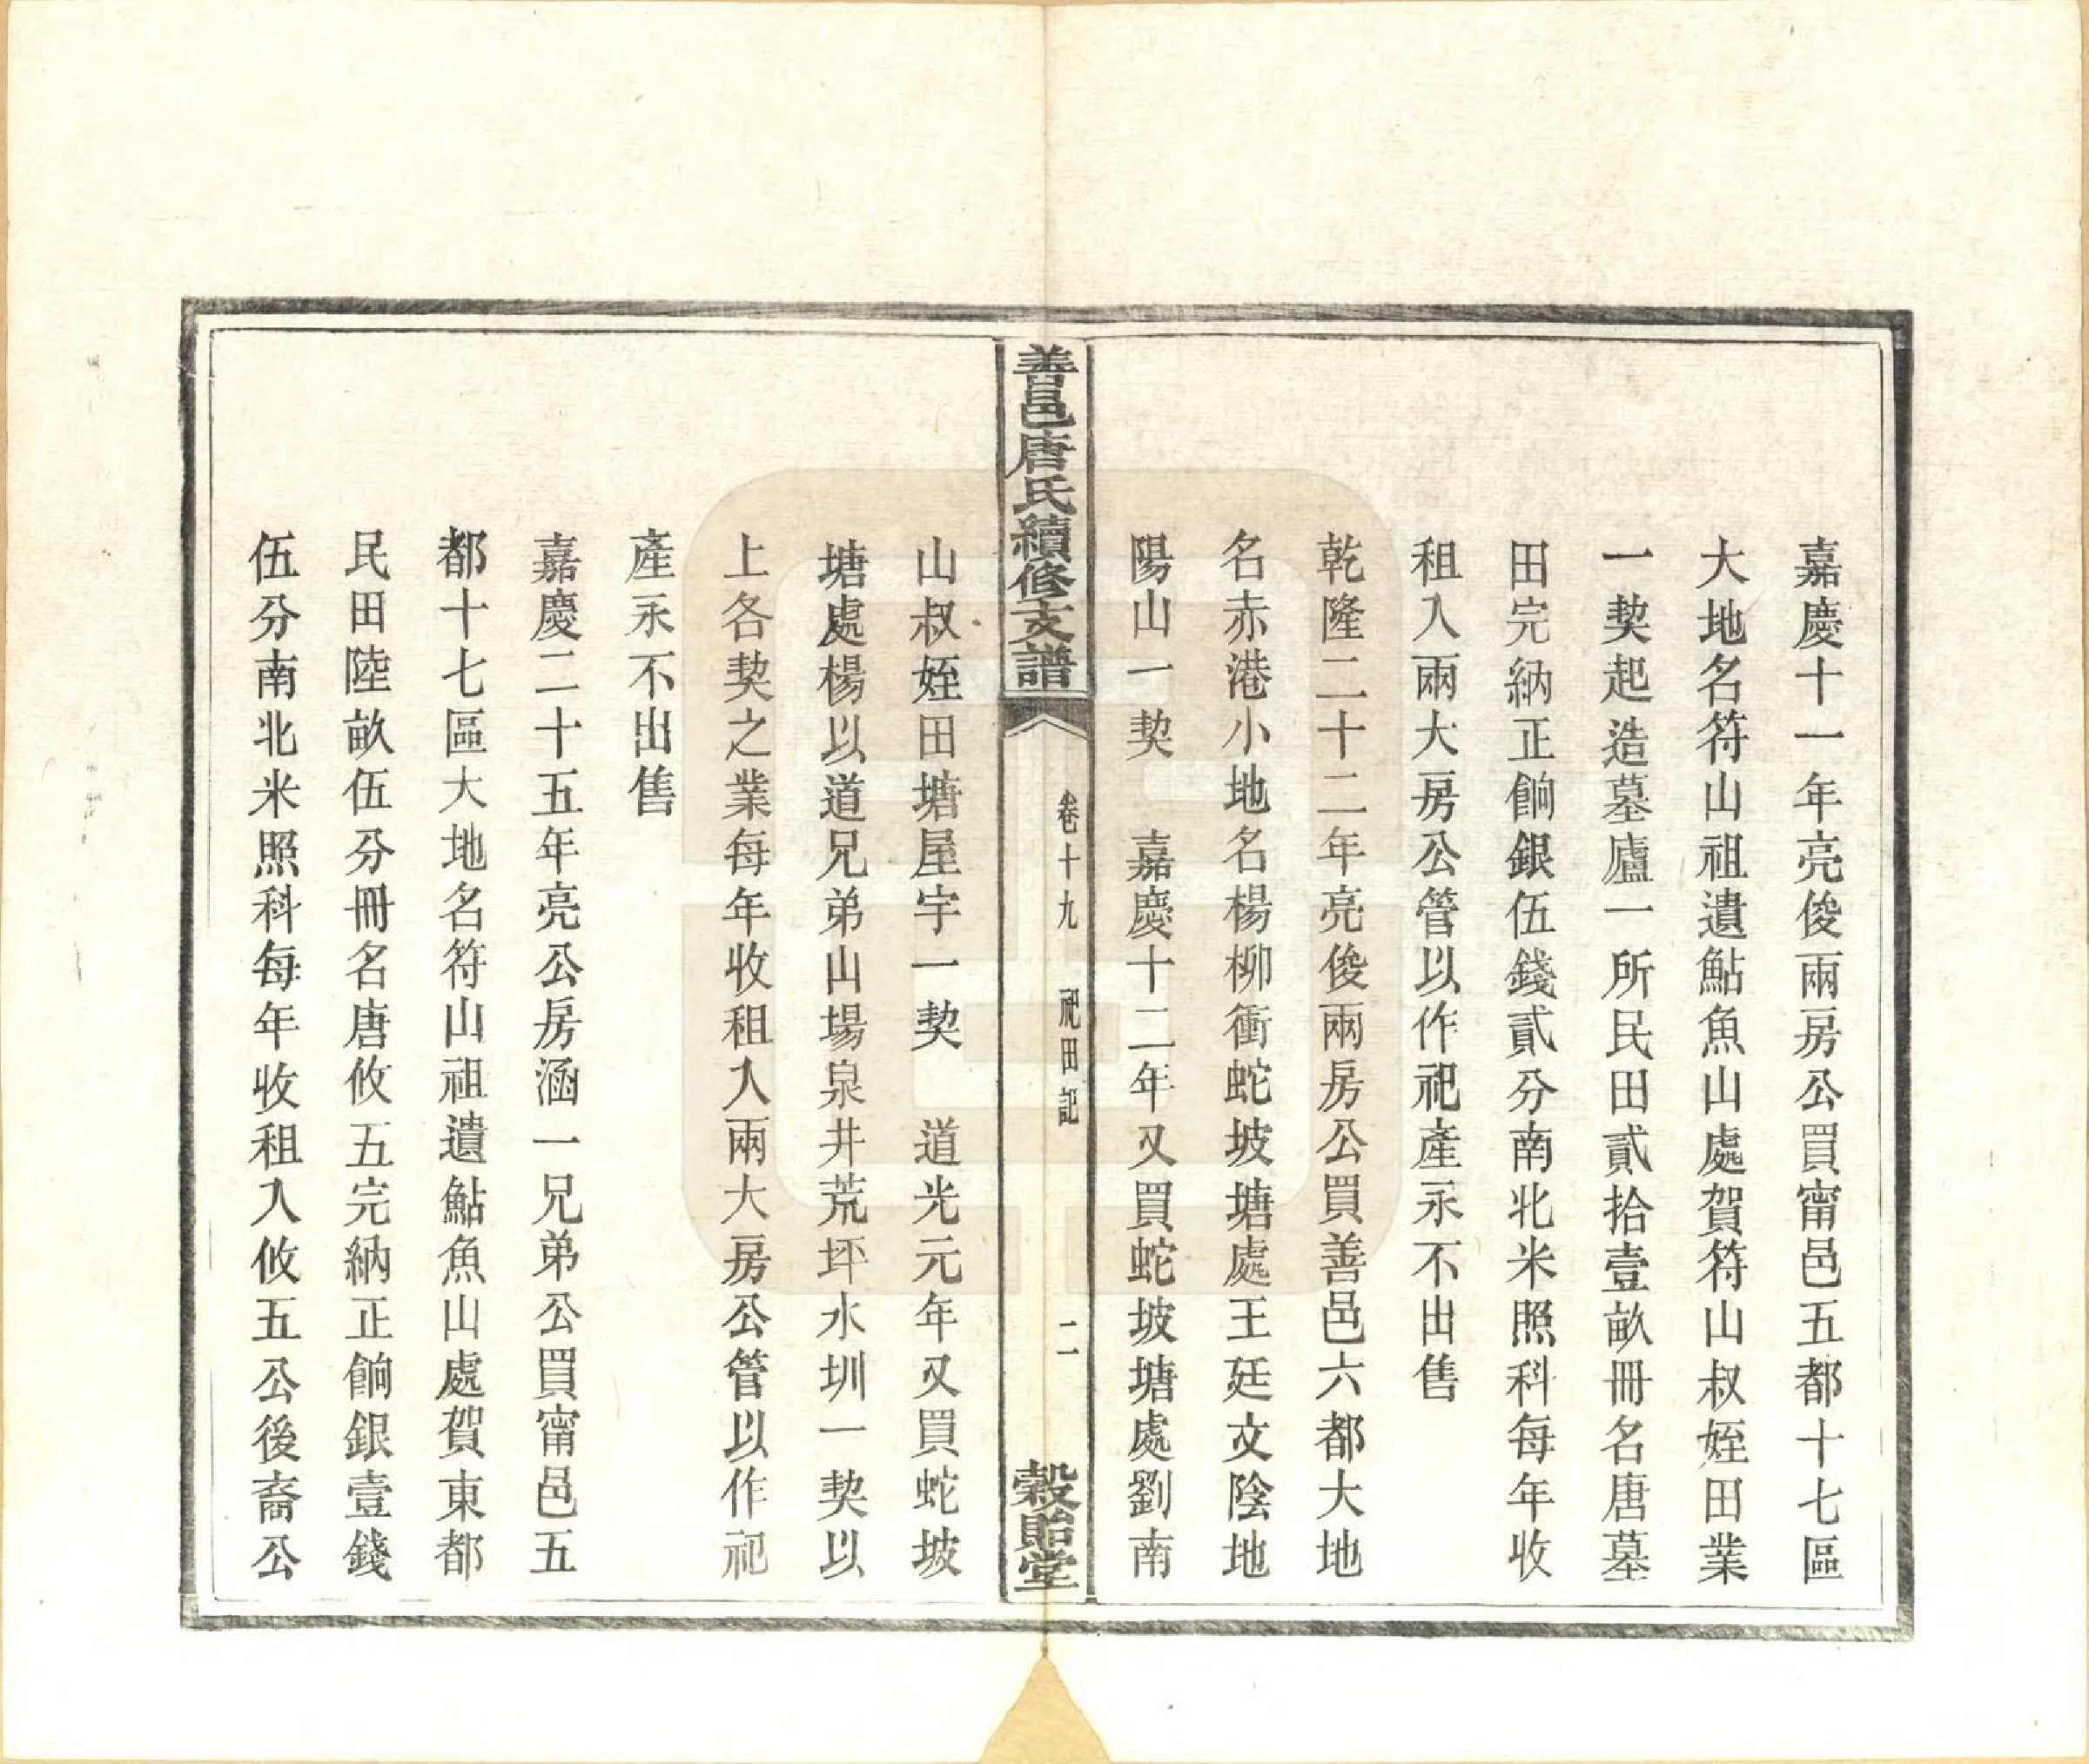 嘉慶十一年亮俊兩房公買甯邑五都十七區
大地名符山祖遺鮎魚山處賀符山叔姪田業
一契起造墓廬一所民田貳拾壹畝冊名唐墓
田完納正餉銀伍錢貳分南北米照科每年收
租入兩大房公管以作祀產永不出售
乾隆二十二年亮俊兩房公買善邑六都大地
名赤港小地名楊柳衝蛇坡塘處王廷文陰地
陽山一契　嘉慶十二年又買蛇坡塘處劉南
善邑唐氏續修支譜
卷十九　祀田記
二
穀貽堂
山叔姪田塘屋宇一契　道光元年又買蛇坡
塘處楊以道兄弟山場泉井荒坏水圳一契以
上各契之業每年收租入兩大房公管以作祀
產永不出售
嘉慶二十五年亮公房涵一兄弟公買甯邑五
都十七區大地名符山祖遺鮎魚山處賀東都
民田陸畝伍分冊名唐攸五完納正餉銀壹錢
伍分南北米照科每年收租入攸五公後裔公